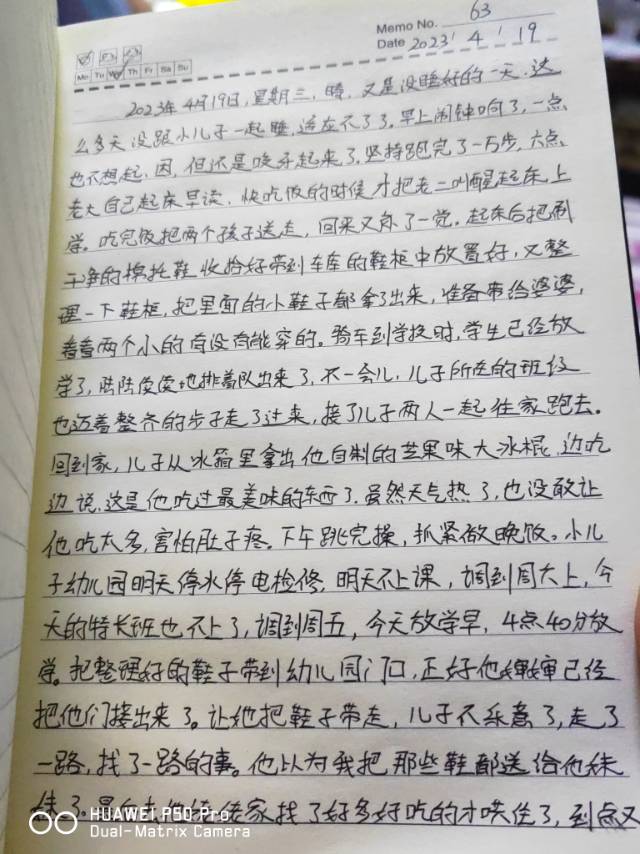 Memo No. 63
Mo Tu We Th Fr Sa Su
Date 2023' 4' 19
2023年4月19日,星期三,晴,又是没睡好的一天,这
么多天没跟小儿子一起睡,适应不了了。早上闹钟响了,一点
也不想起,困,但还是咬牙起来了,坚持跑完了一万步,六点
老大自己起床早读,快吃饭的时候才把老二叫醒起床,上
学。吃完饭把两个孩子送走,回来又补了一觉。起床后把刷
干净的棉拖鞋收拾好带到车库的鞋柜中放置好,又整
理一下鞋柜,把里面的小鞋子都拿了出来,准备带给婆婆,
看看两个小的有没有能穿的。骑车到学校时,学生已经放
学了,陆陆续续地排着队出来了,不一会儿,儿子所在的班级
也迈着整齐的步子走了过来,接了儿子两人一起往家跑去。
回到家,儿子从冰箱里拿出他自制的芒果味大冰棍,边吃
边说,这是他吃过最美味的东西了,虽然天气热了,也没敢让
他吃太多,害怕肚子疼。下午跳完操,抓紧做晚饭。小儿
子幼儿园明天停水停电检修,明天不上课,调到周六上,今
天的特长班也不上了,调到周五,今天放学早,4点40分放
学。把整理好的鞋子带到幼儿园门口,正好他婶婶已经
把他们接出来了。让她把鞋子带走,儿子不乐意了,走了
一路,找了一路的事。他以为我把那些鞋都送给他妹
妹了。家找了好多好吃的才哄住了,到点又
HUAWEI P50 Pro
Dual-Matrix Camera